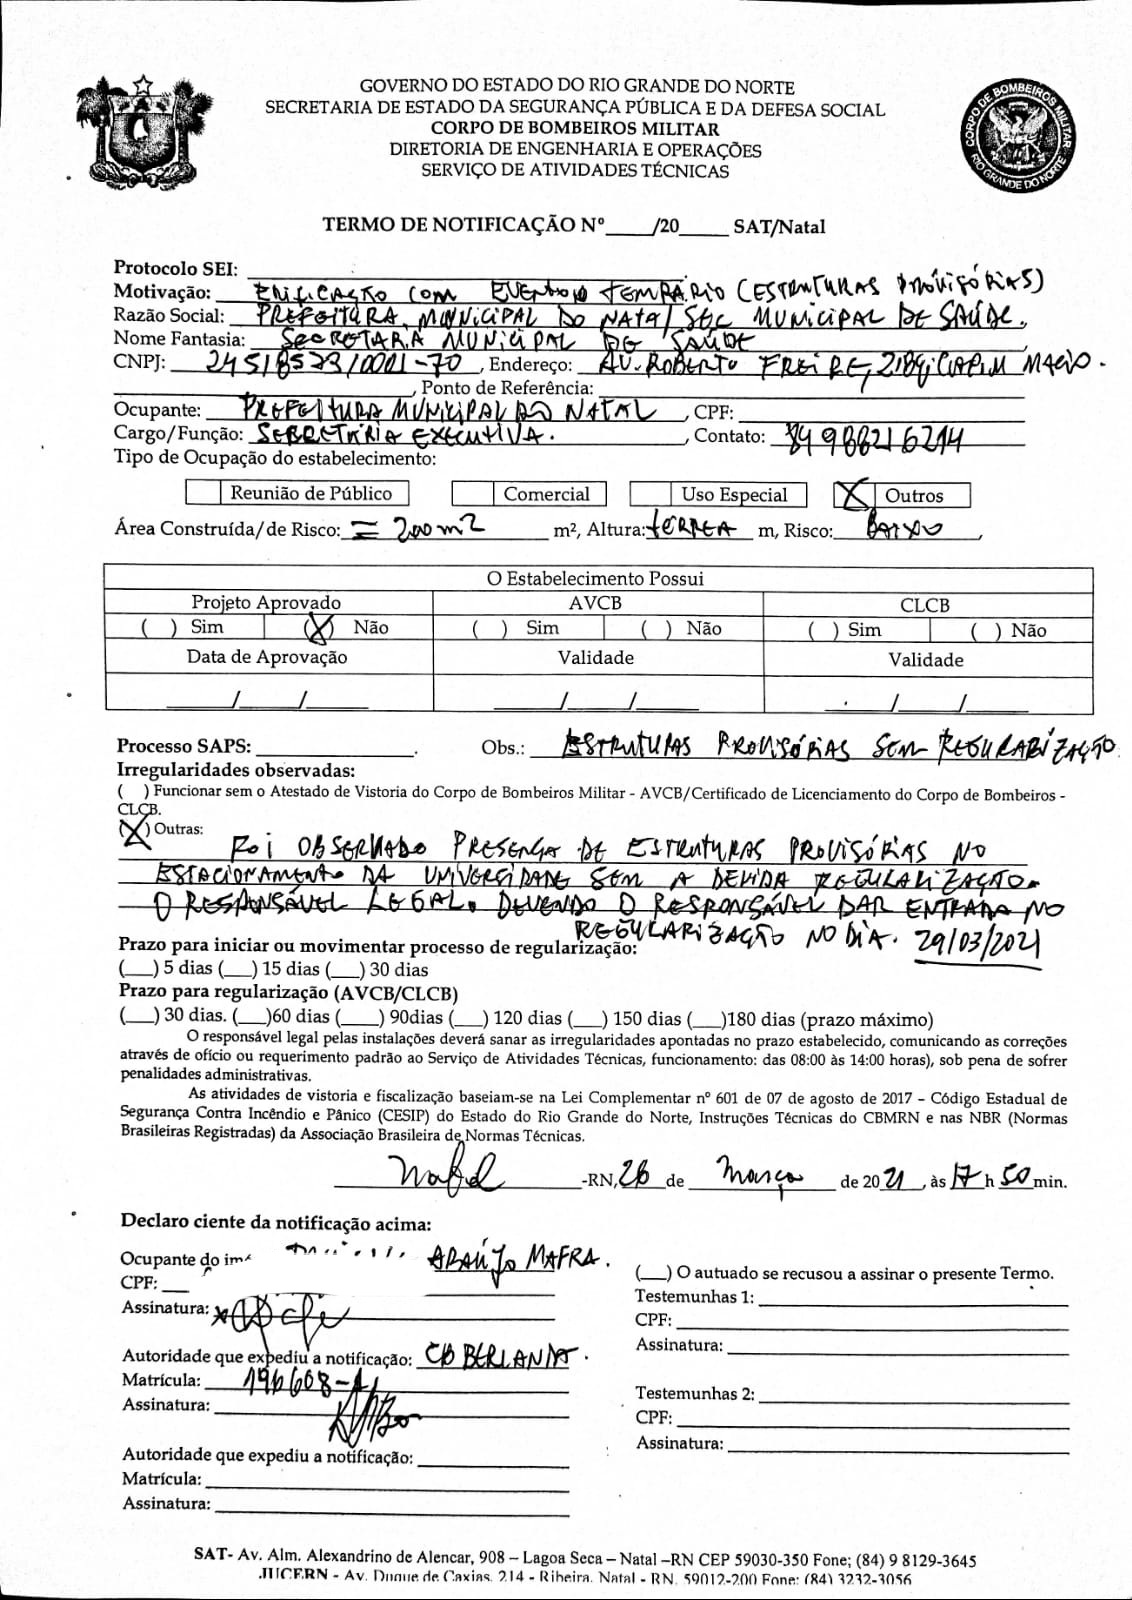 GOVERNO DO ESTADO DO RIO GRANDE DO NORTE
SECRETARIA DE ESTADO DA SEGURANÇA PÚBLICA E DA DEFESA SOCIAL
CORPO DE BOMBEIROS MILITAR
DIRETORIA DE ENGENHARIA E OPERAÇÕES
SERVIÇO DE ATIVIDADES TÉCNICAS
CORPO DE BOMBEIROS MILITAR
RIO GRANDE DO NORTE
TERMO DE NOTIFICAÇÃO Nº____/20____ SAT/Natal
Protocolo SEI:
Motivação: EDIFICAÇÃO COM EVENTO TEMPORÁRIO (ESTRUTURAS PROVISÓRIAS)
Razão Social: PREFEITURA MUNICIPAL DO NATAL/SEC MUNICIPAL DE SAÚDE.
Nome Fantasia: SECRETARIA MUNICIPAL DE SAÚDE
CNPJ: 24518573/0001-70, Endereço: AV. ROBERTO FREIRE, 2184, CAPIM MACIO.
, Ponto de Referência:
Ocupante: PREFEITURA MUNICIPAL DO NATAL, CPF:
Cargo/Função: SECRETÁRIA EXECUTIVA., Contato: 84 988216214
Tipo de Ocupação do estabelecimento:
Reunião de Público Comercial Uso Especial X Outros
Área Construída/de Risco: = 200 m2 m², Altura: TÉRREA m, Risco: BAIXO,
O Estabelecimento Possui
Projeto Aprovado AVCB CLCB
( ) Sim (X) Não ( ) Sim ( ) Não ( ) Sim ( ) Não
Data de Aprovação Validade Validade
____/____/____ ____/____/____ ____/____/____
Processo SAPS: ____. Obs.: ESTRUTURAS PROVISÓRIAS SEM REGULARIZAÇÃO
Irregularidades observadas:
( ) Funcionar sem o Atestado de Vistoria do Corpo de Bombeiros Militar - AVCB/Certificado de Licenciamento do Corpo de Bombeiros -
CLCB.
(X) Outras:
FOI OBSERVADO PRESENÇA DE ESTRUTURAS PROVISÓRIAS NO
ESTACIONAMENTO DA UNIVERSIDADE SEM A DEVIDA REGULARIZAÇÃO.
O RESPONSÁVEL LEGAL. DEVENDO O RESPONSÁVEL DAR ENTRADA NO
REGULARIZAÇÃO NO DIA. 29/03/2021
Prazo para iniciar ou movimentar processo de regularização:
(___) 5 dias (___) 15 dias (___) 30 dias
Prazo para regularização (AVCB/CLCB)
(___) 30 dias. (___)60 dias (____) 90dias (___) 120 dias (___) 150 dias (___)180 dias (prazo máximo)
O responsável legal pelas instalações deverá sanar as irregularidades apontadas no prazo estabelecido, comunicando as correções
através de ofício ou requerimento padrão ao Serviço de Atividades Técnicas, funcionamento: das 08:00 às 14:00 horas), sob pena de sofrer
penalidades administrativas.
As atividades de vistoria e fiscalização baseiam-se na Lei Complementar nº 601 de 07 de agosto de 2017 – Código Estadual de
Segurança Contra Incêndio e Pânico (CESIP) do Estado do Rio Grande do Norte, Instruções Técnicas do CBMRN e nas NBR (Normas
Brasileiras Registradas) da Associação Brasileira de Normas Técnicas.
Natal -RN, 26 de Março de 2021, às 17 h 50 min.
Declaro ciente da notificação acima:
Ocupante do ARAÚJO MAFRA.
CPF:
Assinatura:
(___) O autuado se recusou a assinar o presente Termo.
Testemunhas 1:
CPF:
Assinatura:
Autoridade que expediu a notificação: CB BERLANIA.
Matrícula: 196608-1
Assinatura:
Testemunhas 2:
CPF:
Assinatura:
Autoridade que expediu a notificação:
Matrícula:
Assinatura:
SAT- Av. Alm. Alexandrino de Alencar, 908 – Lagoa Seca – Natal –RN CEP 59030-350 Fone; (84) 9 8129-3645
JUCERN - Av. Duque de Caxias, 214 - Ribeira, Natal - RN, 59012-200 Fone: (84) 3232-3056